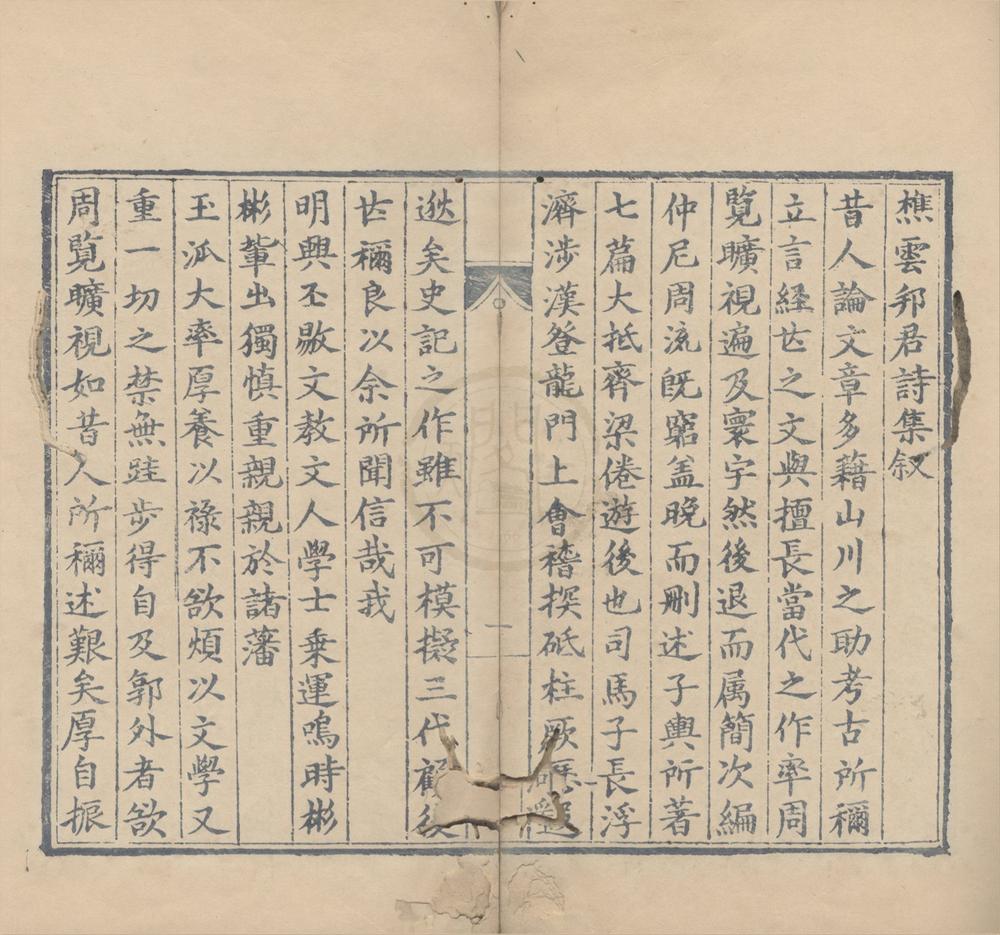 樵雲邦君詩集叙
昔人論文章多藉山川之助考古所穪
立言経世之文與擅長當代之作率周
覽曠視遍及寰宇然後退而属簡次編
仲尼周流旣窮盖晚而刪述子輿所著
七篇大抵齊梁倦遊後也司馬子長浮
濟涉漢登龍門上會稽探砥柱厥
逖矣史記之作雖不可模擬三代顧後
世穪良以余所聞信哉我
明興丕敭文教文人學士乗運鳴時彬
彬輩出獨慎重親親於諸藩
玉泒大率厚養以祿不欲煩以文學又
重一切之禁無跬步得自及郭外者欲
周覧曠視如昔人所穪述艱矣厚自振
一